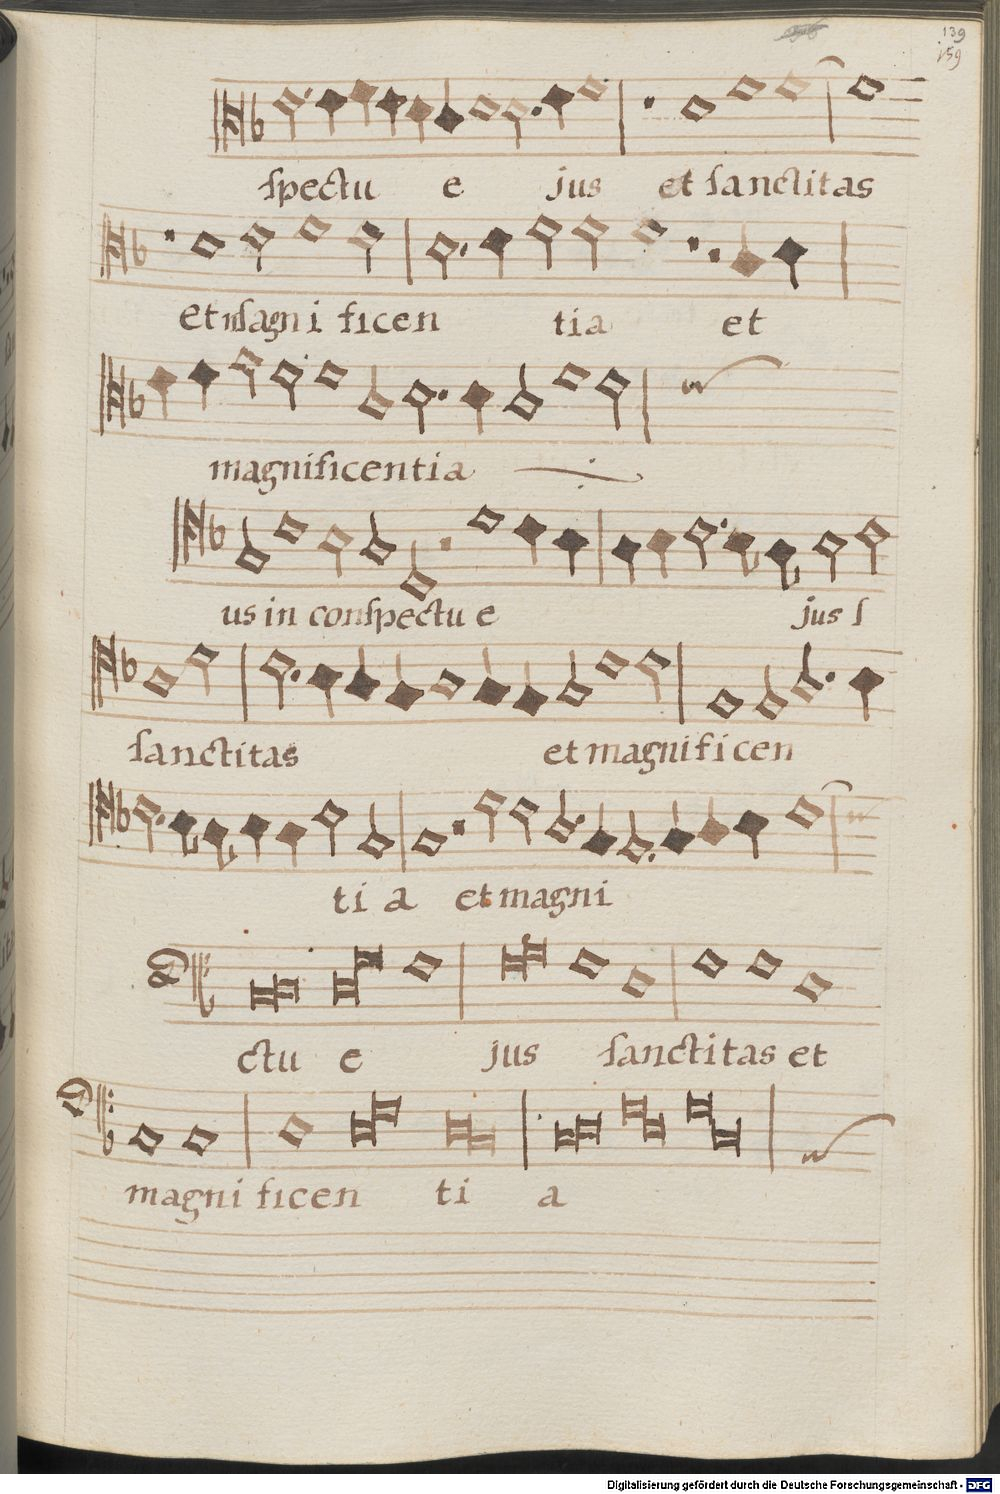 139
159
ſpectu e jus et ſanctitas
et magni ficen tia et
magnificentia
us in conſpectu e jus ſ
ſanctitas et magnificen
ti a et magni
ctu e jus ſanctitas et
magni ficen ti a
Digitalisierung gefördert durch die Deutsche Forschungsgemeinschaft - DFG